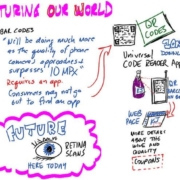 TURING OUR WORLD
BAR CODES
* Will be doing much more
as the quality of phone
camera's approaches &
surpasses 10 MPx
Requires an app.
Consumers may not go
out to find an app
QR
CODES
Universal
CODE READER APP
WEB
PAGE
MORE DETAILS
ABOUT THE
WINE AND
QUALITY
COUPONS
FUTURE
RETINA
SCANS
HERE TODAY